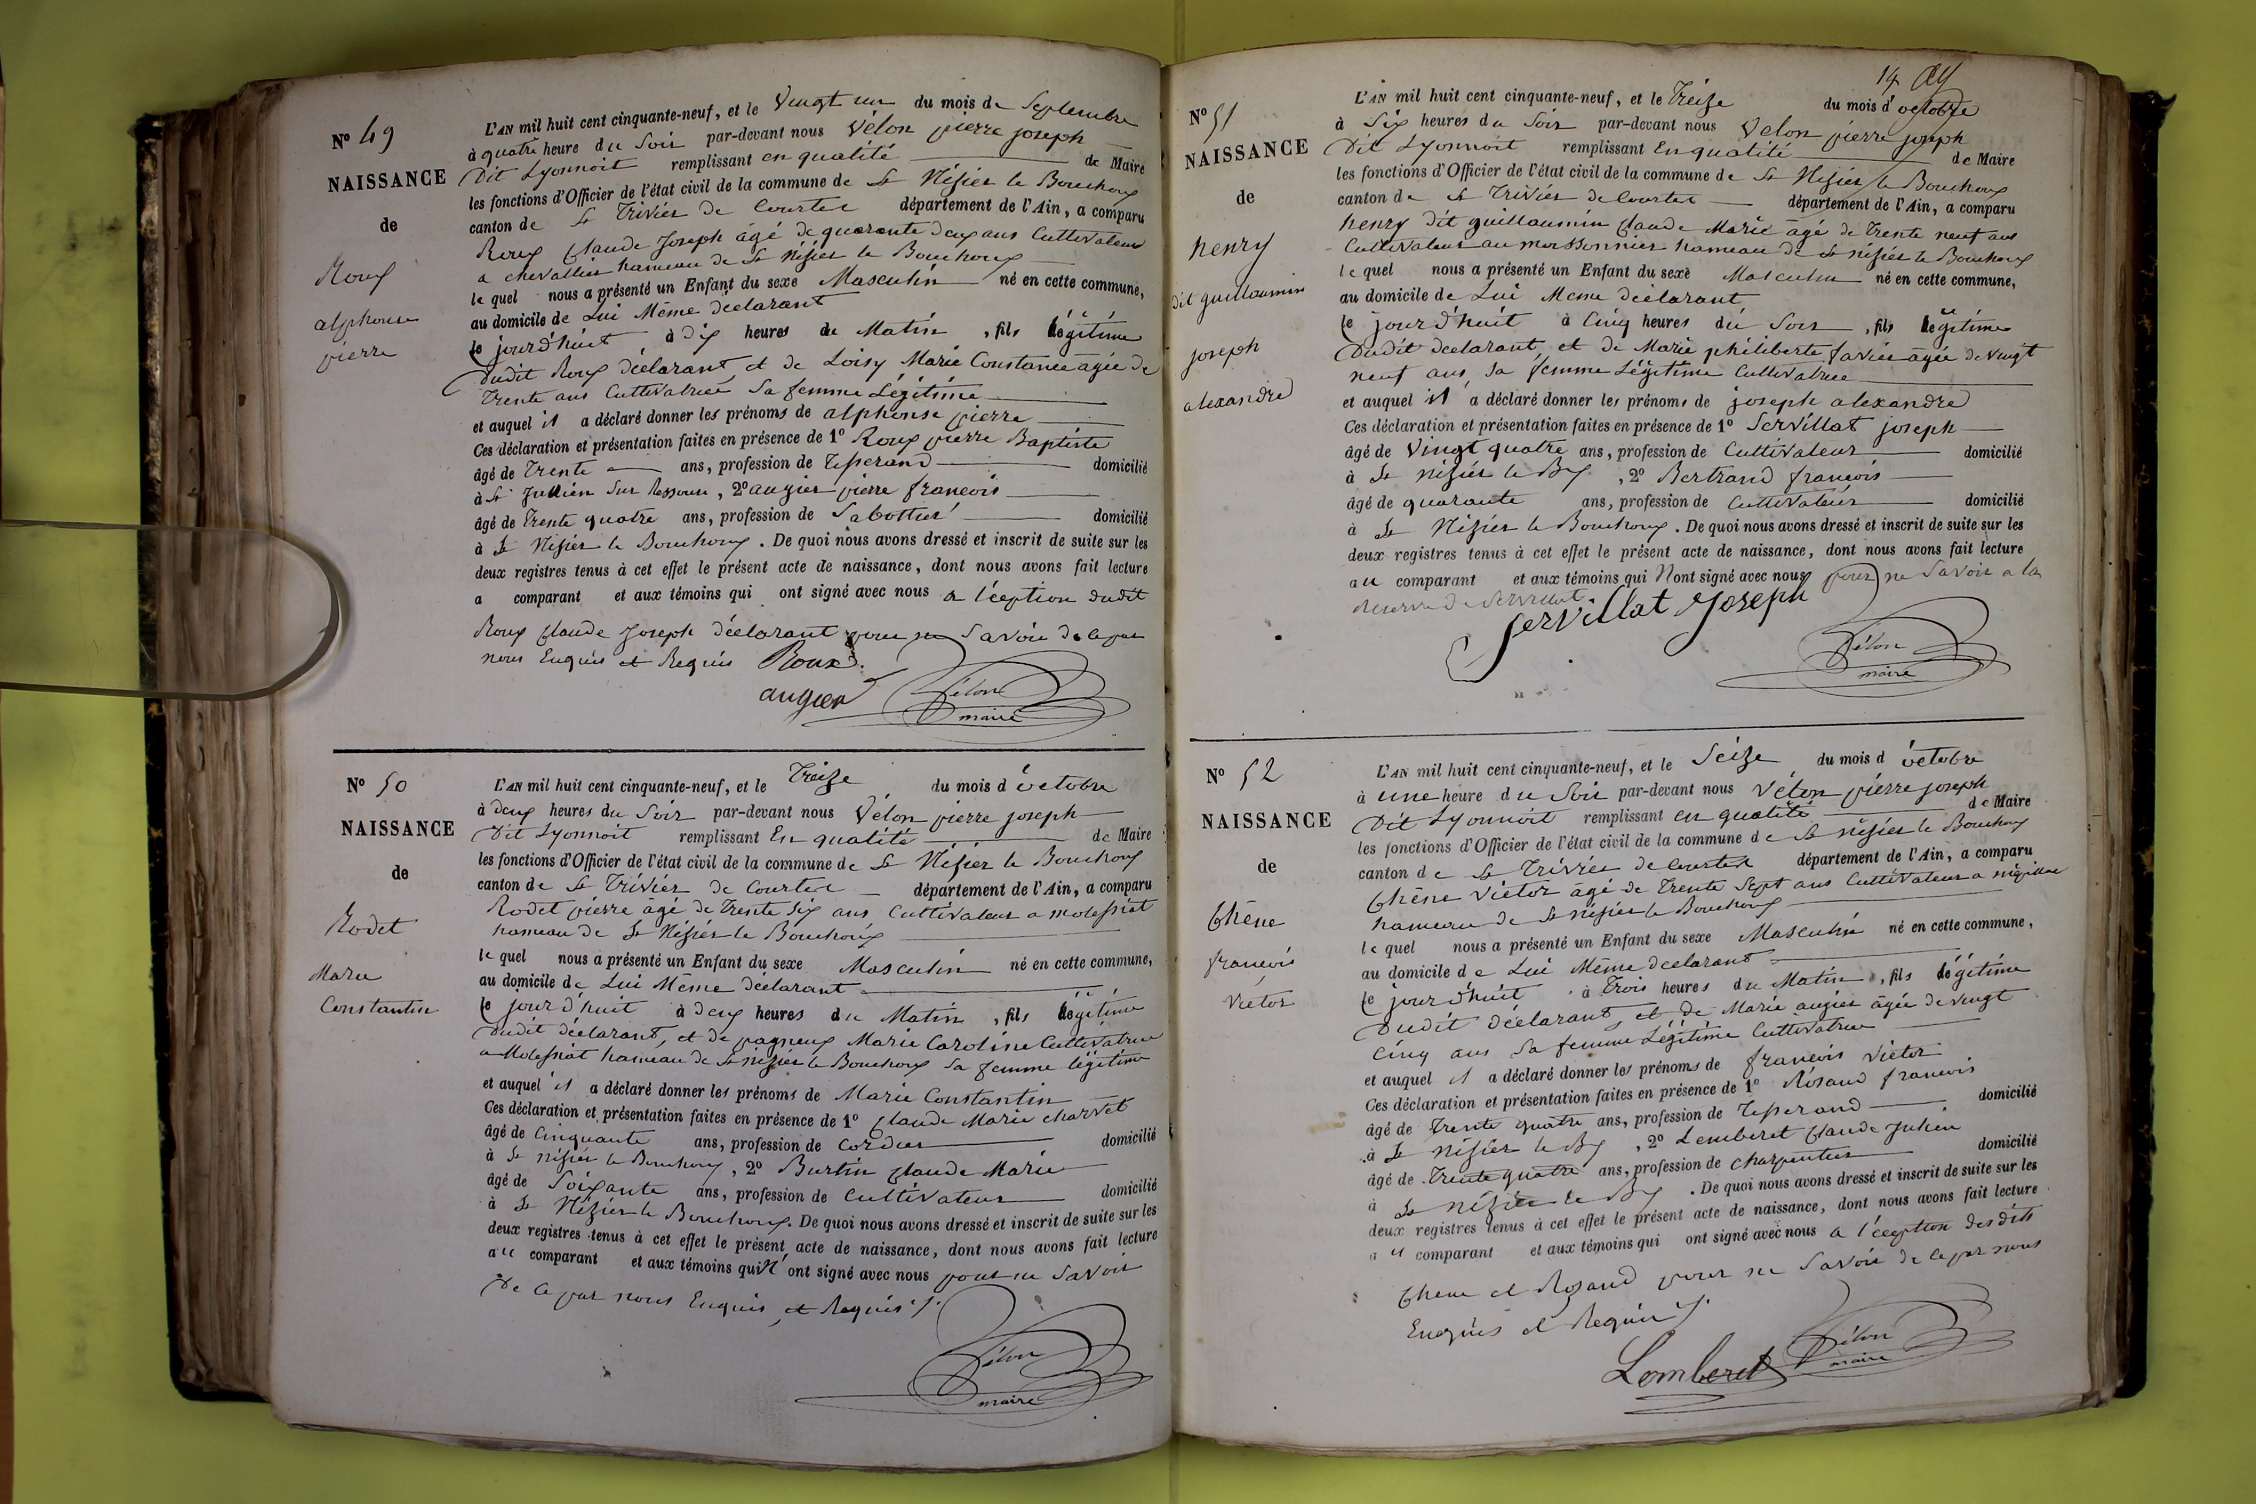 N° 49
NAISSANCE
de
Roux
alphonse
pierre
L'AN mil huit cent cinquante-neuf, et le Vingt un du mois de Septembre
à quatre heure du Soir par-devant nous Vélon pierre joseph
Dit Lyonnoit remplissant en qualité de Maire
les fonctions d'Officier de l'état civil de la commune de St Nizier le Bouchoux
canton de St Trivier de Courtes département de l'Ain, a comparu
Roux Claude Joseph âgé de quarante deux ans Cultivateur
a chevallier hameau de St Nizier le Bouchoux
le quel nous a présenté un Enfant du sexe Masculin né en cette commune,
au domicile de Lui Même déclarant
Ce jourd'huit à dix heures du Matin, fils légitime
Dudit Roux déclarant, et de Loisy Marie Constance âgée de
Trente ans Cultivatrice Sa femme Légitime
et auquel il a déclaré donner les prénoms de alphonse pierre
Ces déclaration et présentation faites en présence de 1° Roux pierre Baptiste
âgé de Trente ans, profession de Tisserand domicilié
à St Jullien Sur Ressouse, 2° augier pierre francois
âgé de Trente quatre ans, profession de Sabottier domicilié
à St Nizier le Bouchoux. De quoi nous avons dressé et inscrit de suite sur les
deux registres tenus à cet effet le présent acte de naissance, dont nous avons fait lecture
a comparant et aux témoins qui ont signé avec nous a l'éception dudit
Roux Claude Joseph déclarant pour ne Savoir de ce par
nous Enquis et Requis Roux
augier Vélon
maire
N° 50
NAISSANCE
de
Rodet
Marie
Constantin
L'AN mil huit cent cinquante-neuf, et le Treize du mois d'octobre
à deux heures du Soir par-devant nous Vélon pierre joseph
Dit Lyonnoit remplissant En qualité de Maire
les fonctions d'Officier de l'état civil de la commune de St Nizier le Bouchoux
canton de St Trivier de Courtes département de l'Ain, a comparu
Rodet pierre âgé de Trente Six ans Cultivateur a molefriat
hameau de St Nizier le Bouchoux
le quel nous a présenté un Enfant du sexe Masculin né en cette commune,
au domicile de Lui Même déclarant
Ce jourd'huit à deux heures du Matin, fils légitime
Dudit déclarant, et de pagneux Marie Caroline Cultivatrice
a Molefriat hameau de St nizier le Bouchoux Sa femme légitime
et auquel il a déclaré donner les prénoms de Marie Constantin
Ces déclaration et présentation faites en présence de 1° Claude Marie charvet
âgé de Cinquante ans, profession de Cordier domicilié
à St nizier le Bouchoux, 2° Burtin Claude Marie
âgé de Soixante ans, profession de Cultivateur domicilié
à St Nizier le Bouchoux. De quoi nous avons dressé et inscrit de suite sur les
deux registres tenus à cet effet le présent acte de naissance, dont nous avons fait lecture
au comparant et aux témoins qui N'ont signé avec nous pour ne Savoir
De Ce par nous Enquis et Requis
Vélon
maire
14
N° 51
NAISSANCE
de
henry
dit guillaumin
joseph
alexandre
L'AN mil huit cent cinquante-neuf, et le Treize du mois d'octobre
à Six heures du Soir par-devant nous Vélon pierre joseph
Dit Lyonnoit remplissant En qualité de Maire
les fonctions d'Officier de l'état civil de la commune de St Nizier le Bouchoux
canton de St Trivier de Courtes département de l'Ain, a comparu
henry dit guillaumin Claude Marie âgé de Trente neuf ans
Cultivateur au morssonnier hameau de St nizier le Bouchoux
le quel nous a présenté un Enfant du sexe Masculin né en cette commune,
au domicile de Lui Même déclarant
Ce jourd'huit à Cinq heures du Soir, fils légitime
Dudit déclarant, et de Marie philiberte favier âgée de vingt
neuf ans Sa femme Légitime Cultivatrice
et auquel il a déclaré donner les prénoms de joseph alexandre
Ces déclaration et présentation faites en présence de 1° Servillat joseph
âgé de Vingt quatre ans, profession de Cultivateur domicilié
à St nizier le Bx, 2° Bertrand francois
âgé de quarante ans, profession de Cultivateur domicilié
à St Nizier le Bouchoux. De quoi nous avons dressé et inscrit de suite sur les
deux registres tenus à cet effet le présent acte de naissance, dont nous avons fait lecture
au comparant et aux témoins qui Nont signé avec nous pour ne Savoir a la
Reserve de Servillat
Servillat Joseph
Vélon
maire
N° 52
NAISSANCE
de
Chêne
francois
Victor
L'AN mil huit cent cinquante-neuf, et le Seize du mois d'octobre
à une heure du Soir par-devant nous Vélon pierre joseph
Dit Lyonnoit remplissant en qualité de Maire
les fonctions d'Officier de l'état civil de la commune de St nizier le Bouchoux
canton de St Trivier de Courtes département de l'Ain, a comparu
Chêne Victor âgé de Trente Sept ans Cultivateur a
hameau de St nizier le Bouchoux
le quel nous a présenté un Enfant du sexe Masculin né en cette commune,
au domicile de Lui Même déclarant
Ce jourd'huit à Trois heures du Matin, fils légitime
Dudit déclarant, et de Marie augier âgée de vingt
Cinq ans Sa femme Légitime Cultivatrice
et auquel il a déclaré donner les prénoms de francois Victor
Ces déclaration et présentation faites en présence de 1° Rosand francois
âgé de Trente quatre ans, profession de Tisserand domicilié
à St nizier le Bx, 2° Lemberet Claude Julien
âgé de Trente quatre ans, profession de charpentier domicilié
à St nizier le Bx. De quoi nous avons dressé et inscrit de suite sur les
deux registres tenus à cet effet le présent acte de naissance, dont nous avons fait lecture
au comparant et aux témoins qui ont signé avec nous a l'éception des dits
Chêne et Rosand pour ne Savoir de ce par nous
Enquis et Requis
Lemberet Vélon
maire